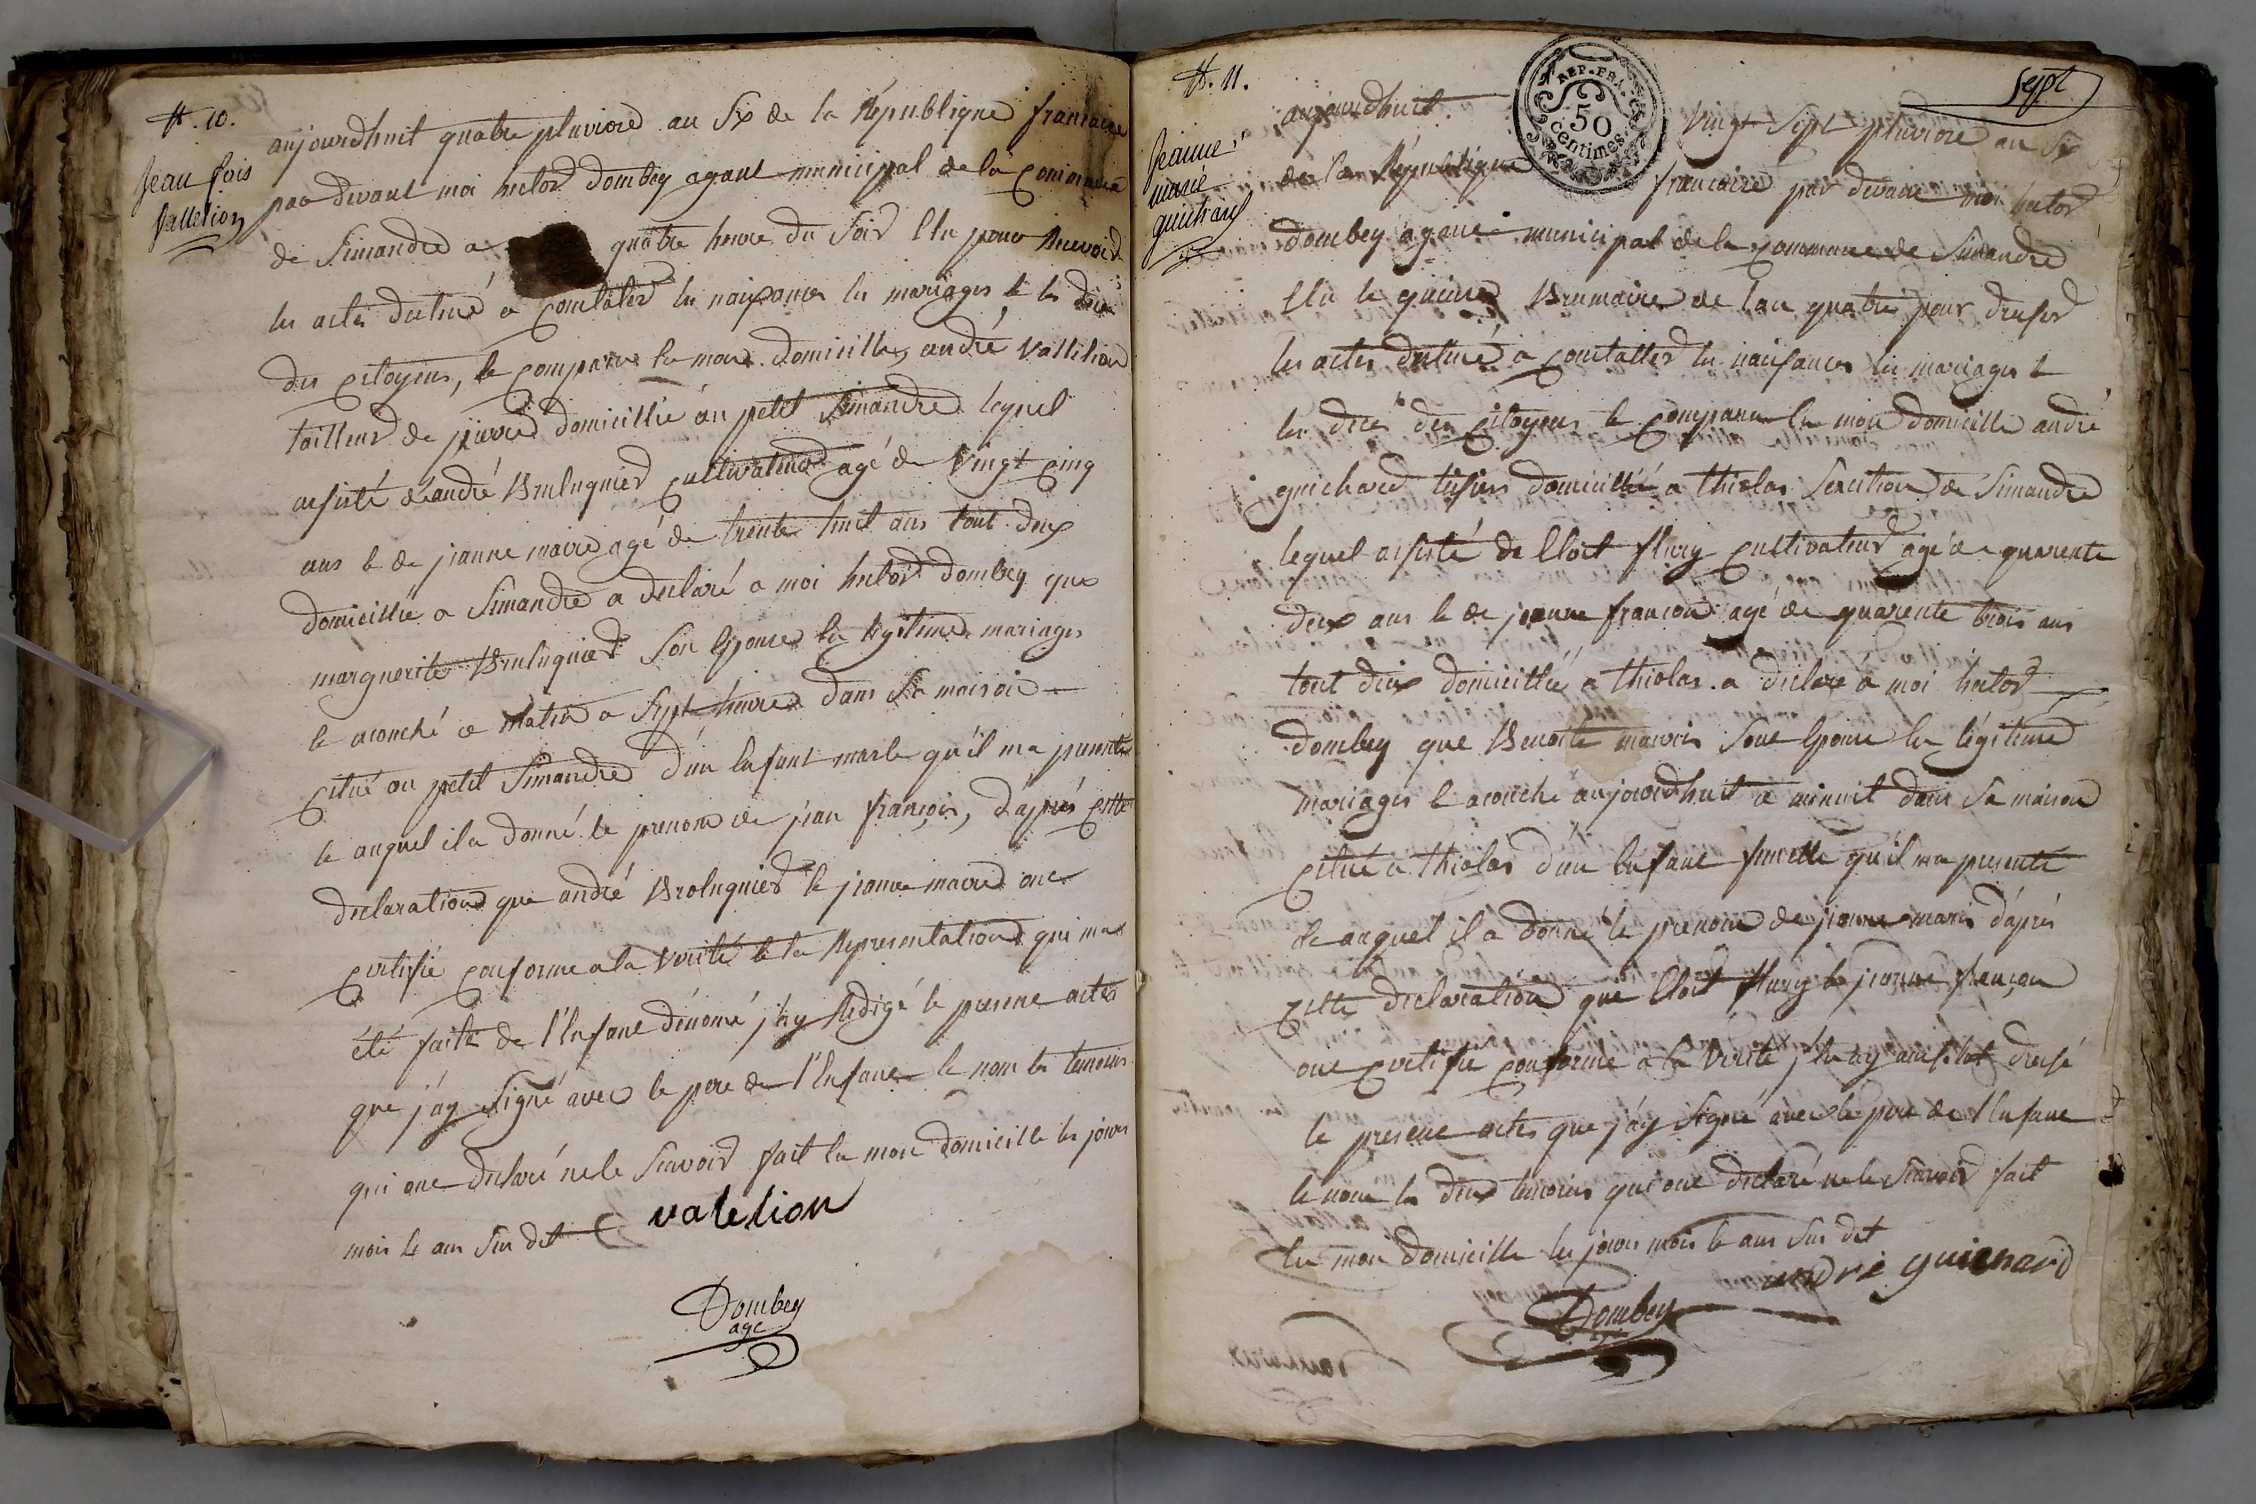 N. 10.
Jean fois
Vallelion
aujourdhuit quatre pluviose an Six de la République francaise
par devant moi hector dombey agant municipal de la Commune
de Simandre a quatre heure du Soir Elu pour Recevoir
les actes destiné a Constater les naixances les mariages & les deces
des Citoyens, be Comparus En mon domicille, andré Vallelion
tailleur de pierre domicillié au petit Simandre lequel
assisté d'andré Brulugnier Cultivateur agé de Vingt Cinq
ans & de jeanne maire agé de trente huit ans tout deux
domicillié a Simandre a declaré a moi hector dombey que
marguerite Brulugnier Son Epouse En legitime mariages
be acouché ce Matin a Sept heure dans Sa maison
Citué au petit Simandre d'un Enfant marle qu'il ma presenté
be auquel il a donné le prenom de jean françois, d'après Cette
declaration que andré Brolugnier be jeanne maire onc
Certifié Conforme a la Verité be la Representation qui ma
été faite de l'Enfant dénomé j'ay Redigé le presene actes
que j'ay Signé avec le pere de l'Enfane be non les temoins
qui one declaré ne le Scavoir fait En mon domicille les jours
mois & an Sus dit
valelion
Dombey
age
N. 11.
Sept
REP. FRA.
50
centimes
Jeanne
marie
guichard
aujourdhuit Vingt Sept pluviose an Six
de la République francaise par devant moi hector
dombey agant municipal de la Commune de Simandre
Elu le quinze Brumaire de l'an quatre pour dresser
les actes destiné a Constatter les naissances les mariages &
les deces des Citoyens be Comparu En mon domicille andré
guichard tissier domicillié a thiolas Sexcition de Simandre
lequel assisté de Eloit flury Cultivateur agé de quarente
deux ans be de jeanne francon agé de quarente trois ans
tout deux domicillié a thiolas a declaré a moi hector
dombey que Benoite marvin Sone Epouse En légitime
mariages be acouché aujourdhuit a minuit dans Sa maison
Citué a thiolas d'un Enfane femelle qu'il ma presenté
be auquel il a donné le prenom de jeanne marie d'après
Cette declaration que Eloit flury be jeanne françon
one Certifié Conforme a la Verité j'En ay aussitot dressé
le presene actes que j'ay Signé avec le pere de l'Enfane
be none les deux temoins qui one declaré ne le Scavoir fait
En mon domicille les jours mois & an Sus dit
andré guichard
Dombey